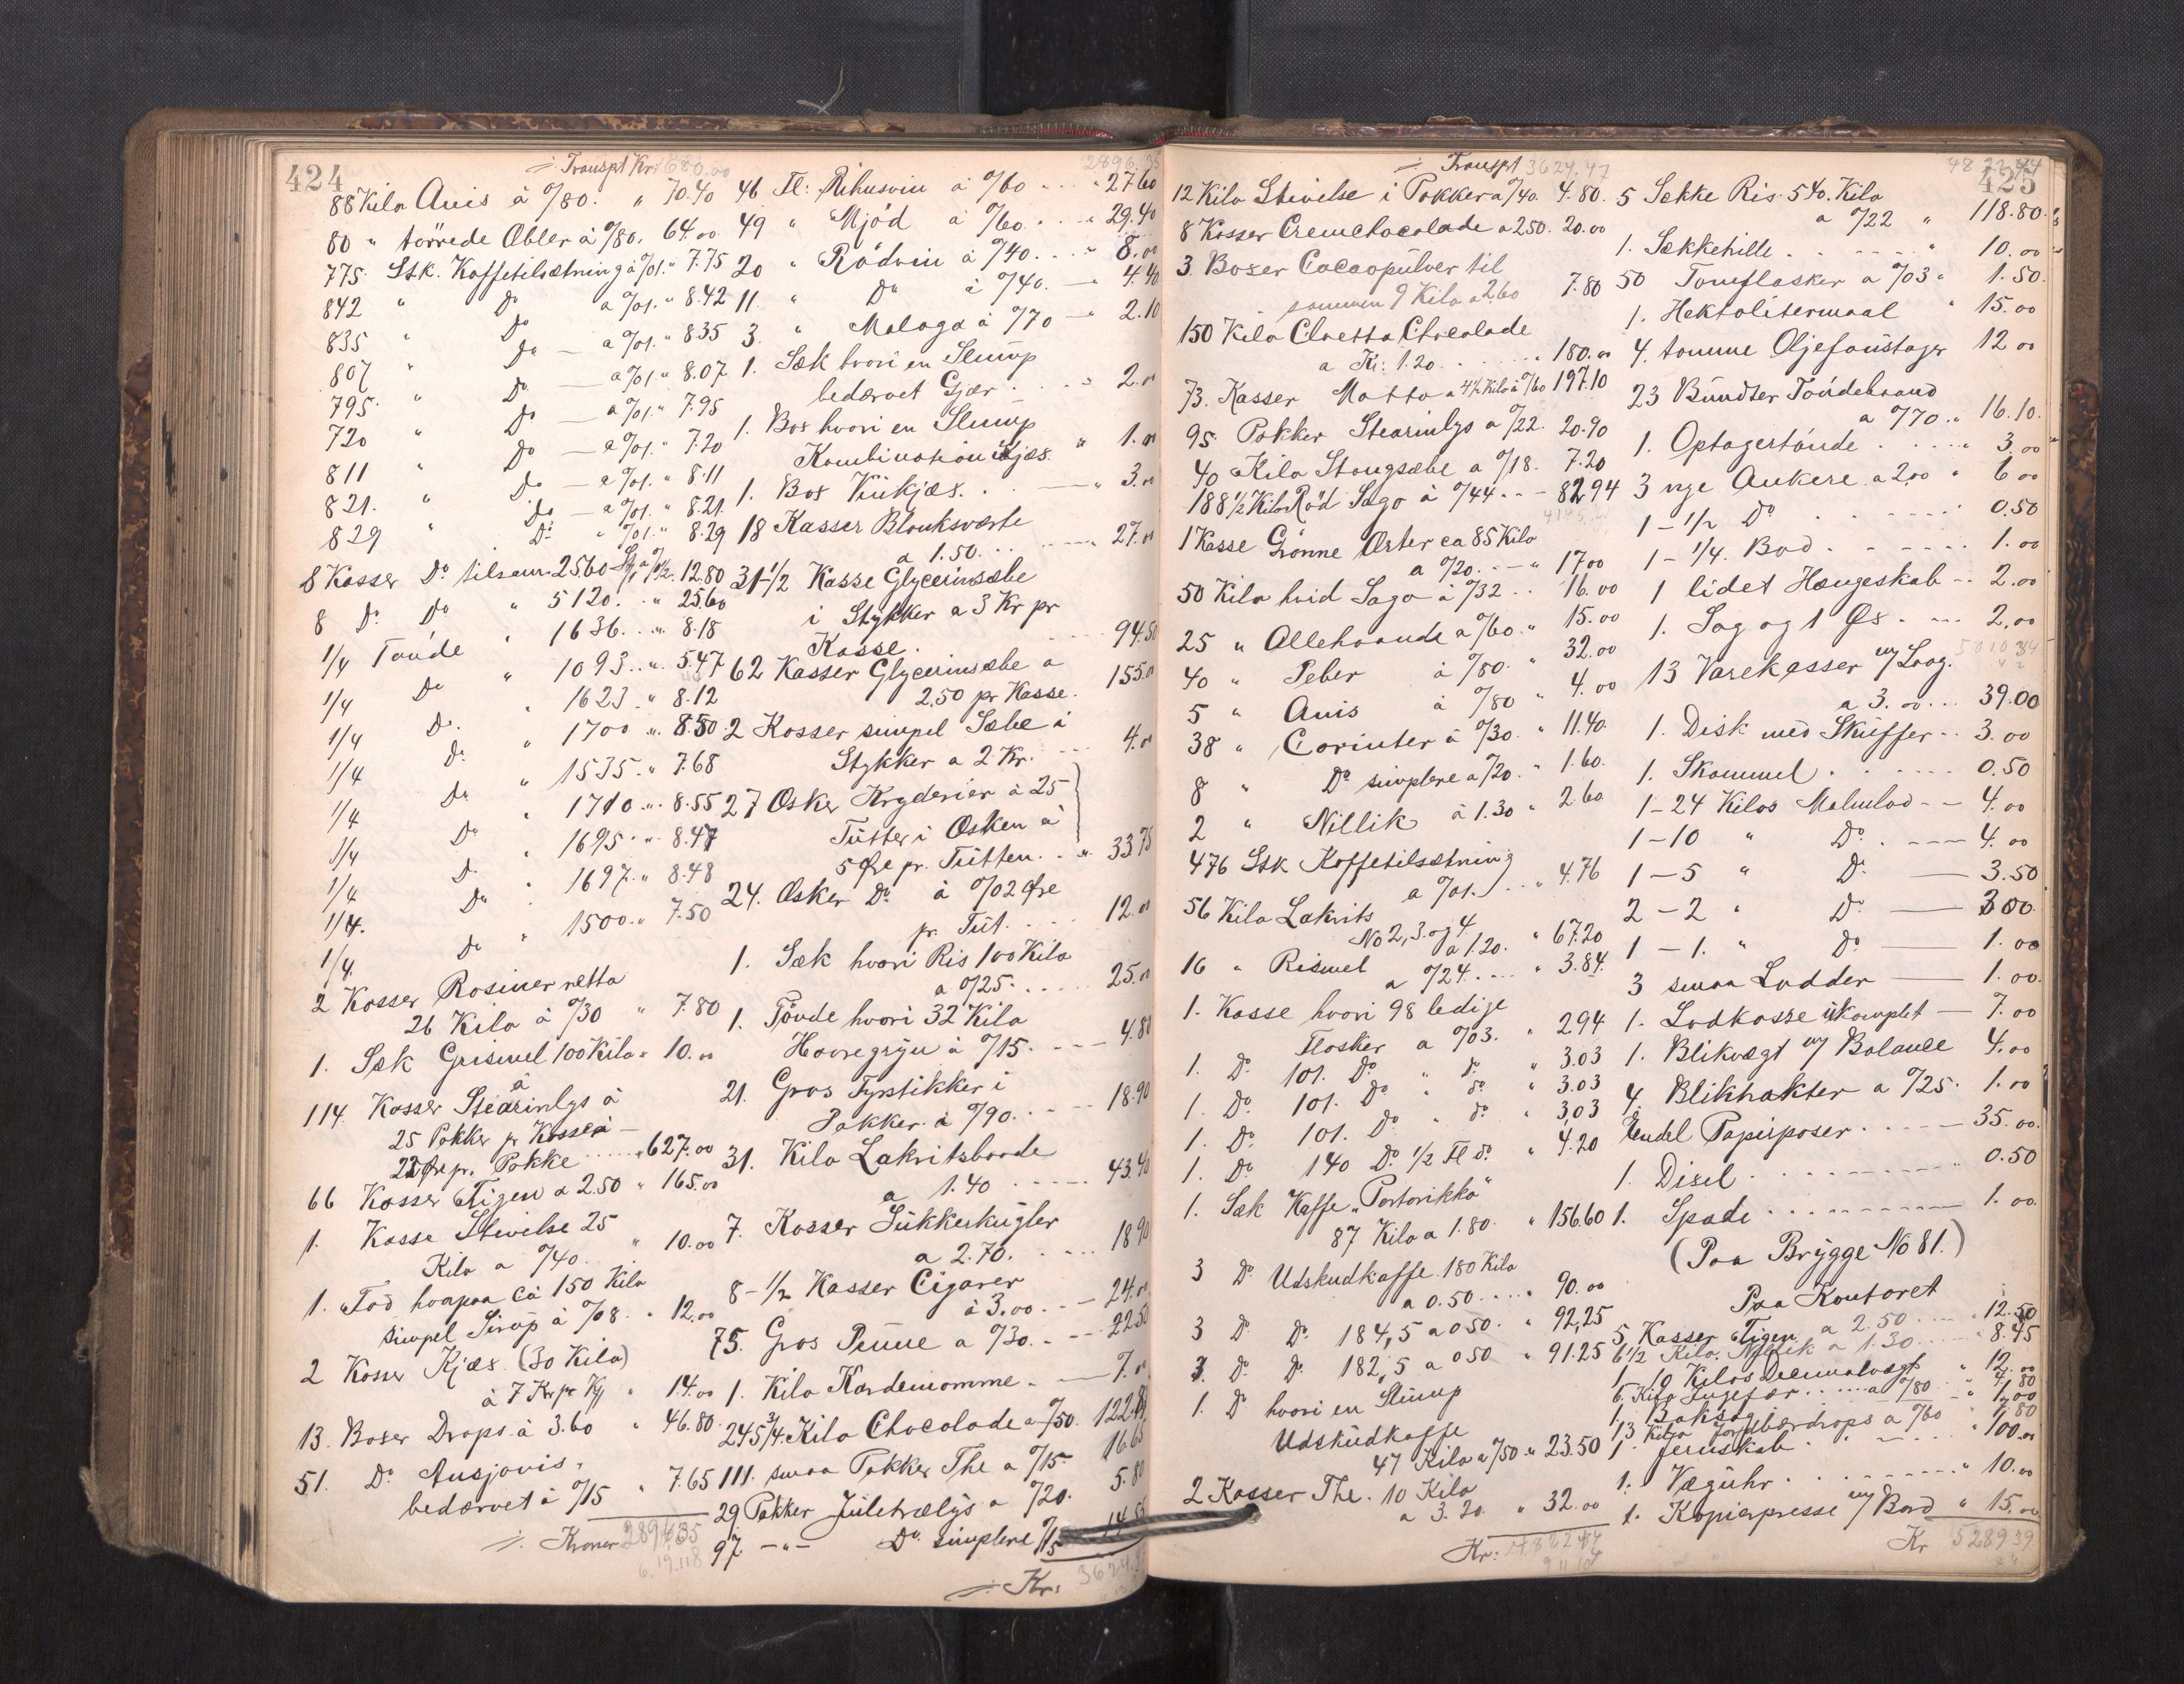 424
Transpt Kr. 1680.00
88 Kilo Anis à %80. " 70.40
80 " törrede Æbler à %80. 64.00
775 Stk. Kaffetilsætning à %01. " 7.75
842 " Do a %01. " 8.42
835 " Do a %01. " 8.35
807 " Do — a %01. " 8.07
795 " Do — a %01. " 7.95
720 " Do — a %01. " 7.20
811 " Do — a %01. " 8.11
821. " Do — a %01. " 8.21
829 " Do " %01. " 8.29
8 Kasser Do tilsam. 2560 Stk a %½. 12.80
8 Do Do " 5120. " 25.60
1/4 Tønde " 1636. " 8.18
1/4 Do " 1093. " 5.47
1/4 Do " 1623 " 8.12
1/4 Do " 1700 " 8.50
1/4 Do " 1535 " 7.68
1/4 Do " 1710 " 8.55
1/4 Do " 1695 " 8.47
1/4 Do " 1697 " 8.48
1/4 Do " 1500 " 7.50
2 Kasser Rosiner netto
26 Kilo à %30 " 7.80
1. Sæk Grismel 100 Kilo " 10.00
114 Kasser Stearinlys à
25 Pakker pr Kasse à —
22 Øre pr. Pakke " 627.00
66 Kasser Figen a 2.50 " 165.00
1. Kasse Stivelse 25
Kilo a %40. " 10.00
1. Fad hvorpaa ca 150 Kilo
simpel Sirup à %08. " 12.00
2 Kasser Kjæs (30 Kilo)
à 7 Kr pr Kg " 14.00
13. Boxer Drops à 3.60 " 46.80
51. Do Ansjovis,
bedærvet à %15 " 7.65
Kroner 2896.35
2896.35
46 Fl: Rihusvin à %60 " 27.60
49 " Mjöd à %60. " 29.40
20 " Rödvin à %40. " 8.00
11. " Do à %40. — 4.40
3. " Malaga à %70 — 2.10
1. Sæk hvori en Slump
bedærvet Gjær 2.00
1. Box hvori en Slump
Kombination Kjæs. " 1.00
1. Box Kükjæs. " 3.00
18 Kasser Blanksværte
a 1.50. 27.00
31-½ Kasse Glycerinsæbe
i Stykker a 3 Kr pr
Kasse. 94.50
62 Kasser Glycerinsæbe a
2.50 pr Kasse. 155.00
2 Kasser simpel Sæbe i
Stykker a 2 Kr. 4.00
27 Æsker Kryderier à 25
Tutter i Æsken à
5 Øre pr. Tutten. " 33.75
24. Æsker Do à %02 Øre
pr. Tut. 12.00
1. Sæk hvori Ris 100 Kilo
a %25. 25.00
1. Tönde hvori 32 Kilo
Havregryn à %15. 4.80
21. Gros Fyrstikker i
Pakker à %90. 18.90
31. Kilo Lakritsbaade
a 1.40 43.40
7. Kasser Sukkerkugler
a 2.70. 18.90
8-½ Kasser Cigarer
à 3.00. 24.00
75. Gros Penne a %30. 22.50
1. Kilo Kardemomme. — 7.00
245 3/4. Kilo Chocolade a %50. 122.88
111. smaa Pakker The a %15. 16.65
29 Pakker Juletrælys a %20. 5.80
97 —"— Do simplere %15 14.55
Kr: 3624.47
425
Transpt 3624.47
12 Kilo Stivelse i Pakker a %40. 4.80.
8 Kasser Cremchocolade a 250. 20.00
3. Boxer Cacaopulver til
sammen 9 Kilo a 2.60 7.80
150 Kilo Cloetta Chocolade
a Kr: 1.20. " 180.00
73. Kasser Matto a 4½ Kilo à %60 197.10
95. Pakker Stearinlys a %22. 20.90
40 Kilo Stangsæbe a %18. 7.20
188½ Kilo Röd Sago à %44 - 82.94
1 Kasse Grönne Ærter ca 85 Kilo
a %20. " 17.00
50 Kilo hvid Sago à %32 16.00
25 " Allehaande a %60. " 15.00
40 " Peber à %80. " 32.00
5 " Anis à %80 " 4.00
38 " Corinter à %30. " 11.40.
8 " Do simplere a %20. " 1.60.
2 " Nillik à 1.30 " 2.60
476 Stk Kaffetilsætning
a %01. " 4.76
56 Kilo Lakrits
No 2, 3. og 4.
a 1.20. " 67.20
16 " Rismel a %24. " 3.84.
1. Kasse hvori 98 ledige
Flasker a %03. " 2.94
1. Do 101. Do " do " 3.03
1. Do 101. Do " do " 3.03
1. Do 101. Do " do " 3.03
1. Do 140 Do ½ Fl do " 4.20
1. Sæk Kaffe „Portorikko"
87 Kilo a 1.80. " 156.60
3 Do Udskudkaffe 180 Kilo
a 0.50. " 90.00
3 Do Do 184,5 a 0.50. " 92,25
3. Do Do 182,5 a 0.50 " 91.25
1. Do hvori en Slump
Udskudkaffe
47 Kilo a %50 " 23.50
2 Kasser The. 10 Kilo
a 3.20. " 32.00
Kr: 4822.44
4822.44
5 Sække Ris 540. Kilo
a %22 " 118.80.
1. Sækkehille. " 10.00
50 Tomflasker a %03 " 1.50.
1. Hektolitermaal " 15.00
4. tomme Oljefoustager 12.00
23 Bundter Töndebaand
a %70. " 16.10.
1. Optagertönde 3.00
3 nye Ankere a 2.00 " 6.00
1-½ Do 0.50
1-¼. Bad. 1.00
1 lidet Hængeskab 2.00
1. Sag og 1 Øx. 2,00
13 Varekasser m/ Laag.
a 3.00 39.00
1. Disk med Skuffer 3.00
1. Skammel. 0.50
1-24 Kilos Malmlod - - 4.00
1-10 " Do. ---- 4.00
1-5 " Do. — 3.50
2-2 " Do. — 3.00
1-1. " Do — 1.00
3 smaa Lodder — 1.00.
1. Lodkasse ukomplet — 7.00
1. Blikvægt m/ Balance 4.00
4. Bliktrakter a %25. 1.00
Endel Papirposer. 35.00.
1. Disel. 0.50
1. Spade 1.00.
(Paa Brygge No 81.)
Paa Kontoret
5. Kasser Figen a 2.50 12.50
6½ Kilo. Nellik a 1.30 8.45
1. 10 Kilos Decimalvægt " 12.00
6. Kilo Ingefær a %80 " 4.80
1. " 1.00
13 Kilo drops a %60 " 7.80
1. Jernskab " 100.00
1. Væguhr. " 10.00
1. Kopierpresse m/ Bord " 15.00
Kr 5289.39